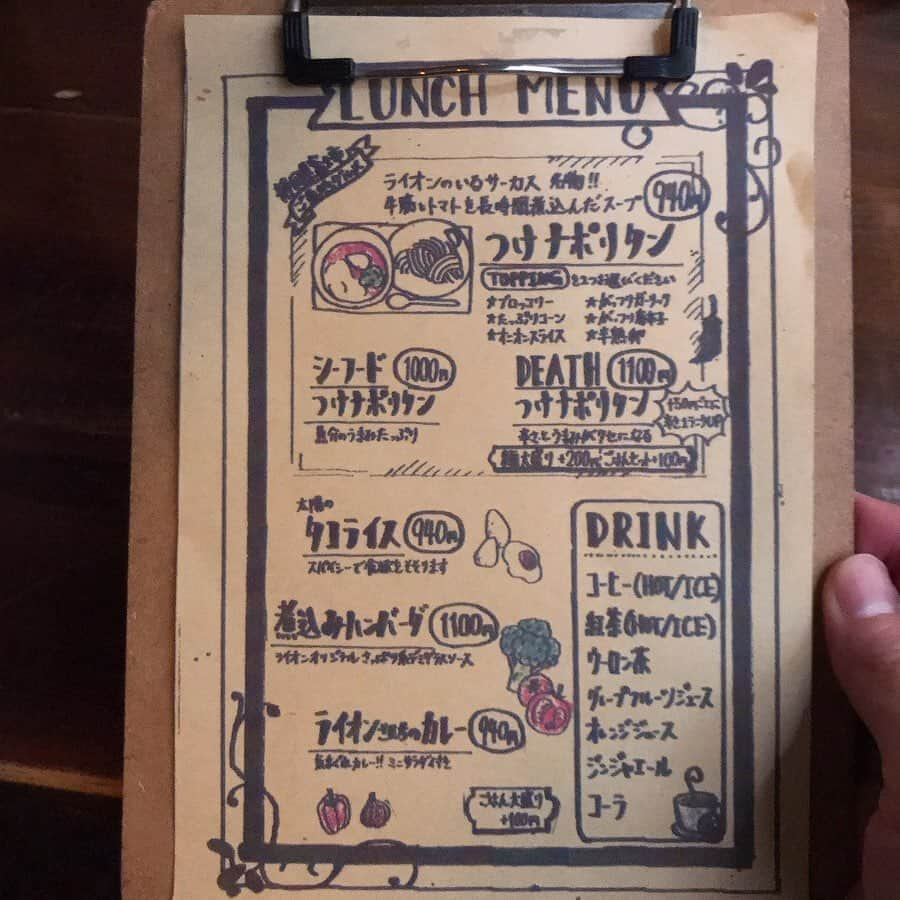 LUNCH MENU
ライオンのいるサーカス 名物!!
牛腐とトマトを長時間煮込んだスープ
940円
つけナポリタン
TOPPING を2つお選びください
★ブロッコリー
★たっぷりコーン
★オニオンスライス
★ガッツリガーリック
★ガッツリ唐辛子
★半熟卵
シーフード 1000円
つけナポリタン
魚介のうまみたっぷり
DEATH 1100円
つけナポリタン
辛さとうまみがクセになる
麺大盛り +200円 ごはんセット+100円
太陽の
タコライス 940円
スパイシーで食欲をそそります
煮込みハンバーグ 1100円
ライオンオリジナル さっぱり系デミグラスソース
ライオン カレー 940円
カレー!! ミニサラダ付き
ごはん大盛り
+100円
DRINK
コーヒー(HOT/ICE)
紅茶(HOT/ICE)
ウーロン茶
グレープフルーツジュース
オレンジジュース
ジンジャエール
コーラ